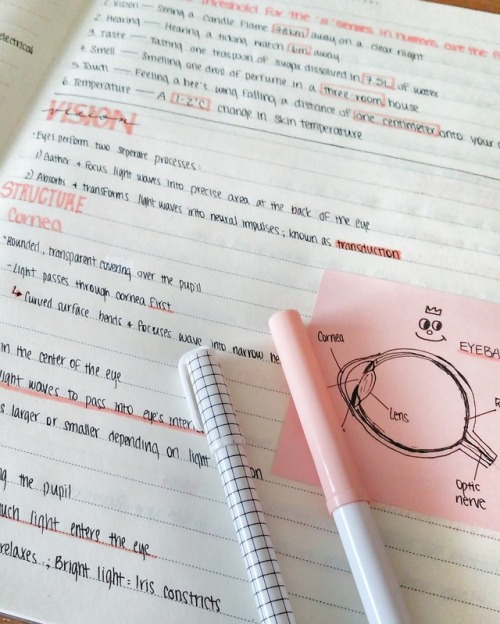 electrical
threshold for the 5 senses in humans are the
1. Vision — Seeing a candle flame 48km away on a clear night
2. Hearing — Hearing a ticking watch 6m away
3. Taste — Tasting one teaspoon of sugar dissolved in 7.5L of water
4. Smell — Smelling one drop of perfume in a three room house
5. Touch — Feeling a bee's wing falling a distance of one centimeter onto your
6. Temperature — A 1-2°C change in skin temperature
VISION
vision
·Eyes perform two seperate processes:
1) Gather + focus light waves into precise area at the back of the eye
2) Absorbs + transforms light waves into neural impulses; known as transduction
STRUCTURE
Cornea
-Rounded, transparent covering over the pupil
-Light passes through cornea first
↳ Curved surface bends + focuses wave into narrow be
in the center of the eye
light waves to pass into eye's inter
s larger or smaller depending on light
on
g the pupil
uch light enters the eye
relaxes ; Bright light: Iris constricts
EYEBA
Cornea
Lens
Optic
nerve